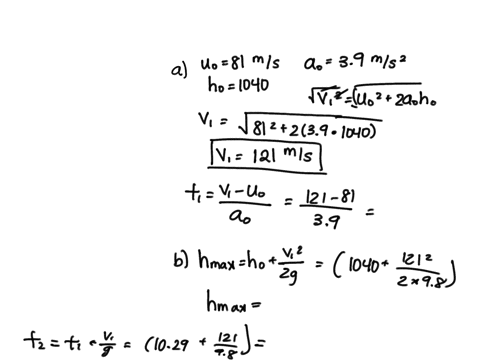 a) u₀ = 81 m/s a₀ = 3.9 m/s²
h₀ = 1040
√V₁² = √(u₀² + 2a₀h₀
V₁ = √81² + 2(3.9 • 1040)
V₁ = 121 m/s
t₁ = (V₁ - u₀)/a₀ = (121 - 81)/3.9 =
b) hmax = h₀ + V₁²/2g = (1040 + 121²/(2 × 9.8))
hmax =
t₂ = t₁ + V₁/g = (10.29 + 121/9.8) =